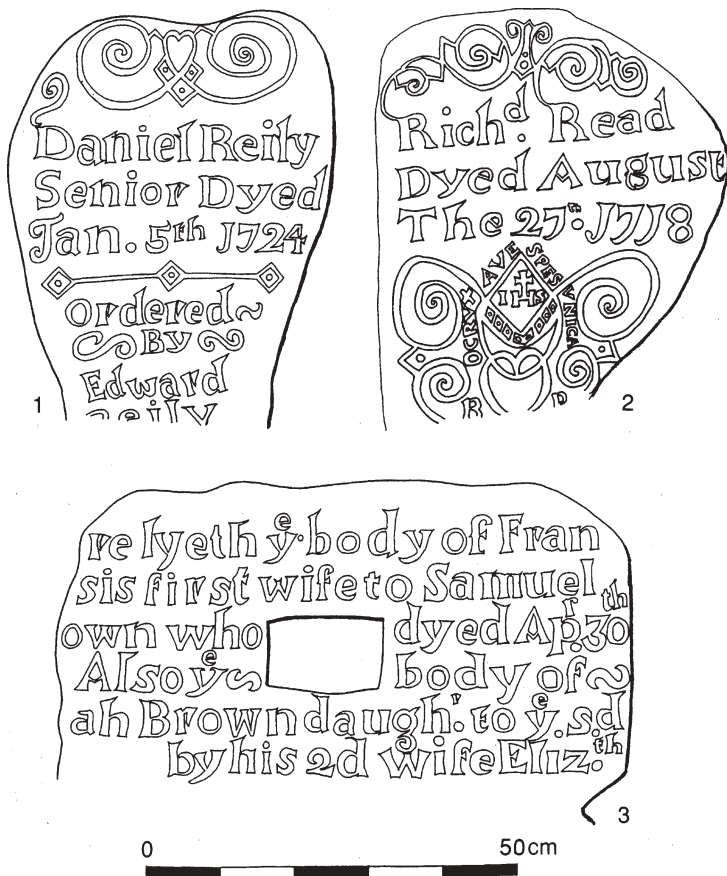 Daniel Reily
Senior Dyed
Jan. 5th 1724
Ordered~
By
Edward
Reily
1
Richd. Read
Dyed August
The 27th. 1718
AVE SPES
OCRVX VNICA
IHS
R D
2
re lyeth ye. body of Fran
sis first wife to Samuel
own who dyed Apr. 30th
Also ye body of~
ah Brown daughr. to ye. s.d
by his 2d wife Eliz.th
3
0 50cm